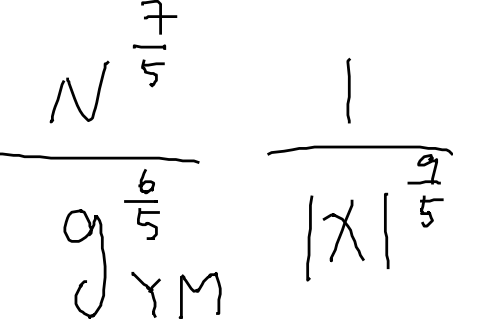 \frac{N^{\frac{7}{5}}}{g_{YM}^{\frac{6}{5}}} \frac{1}{|X|^{\frac{9}{5}}}